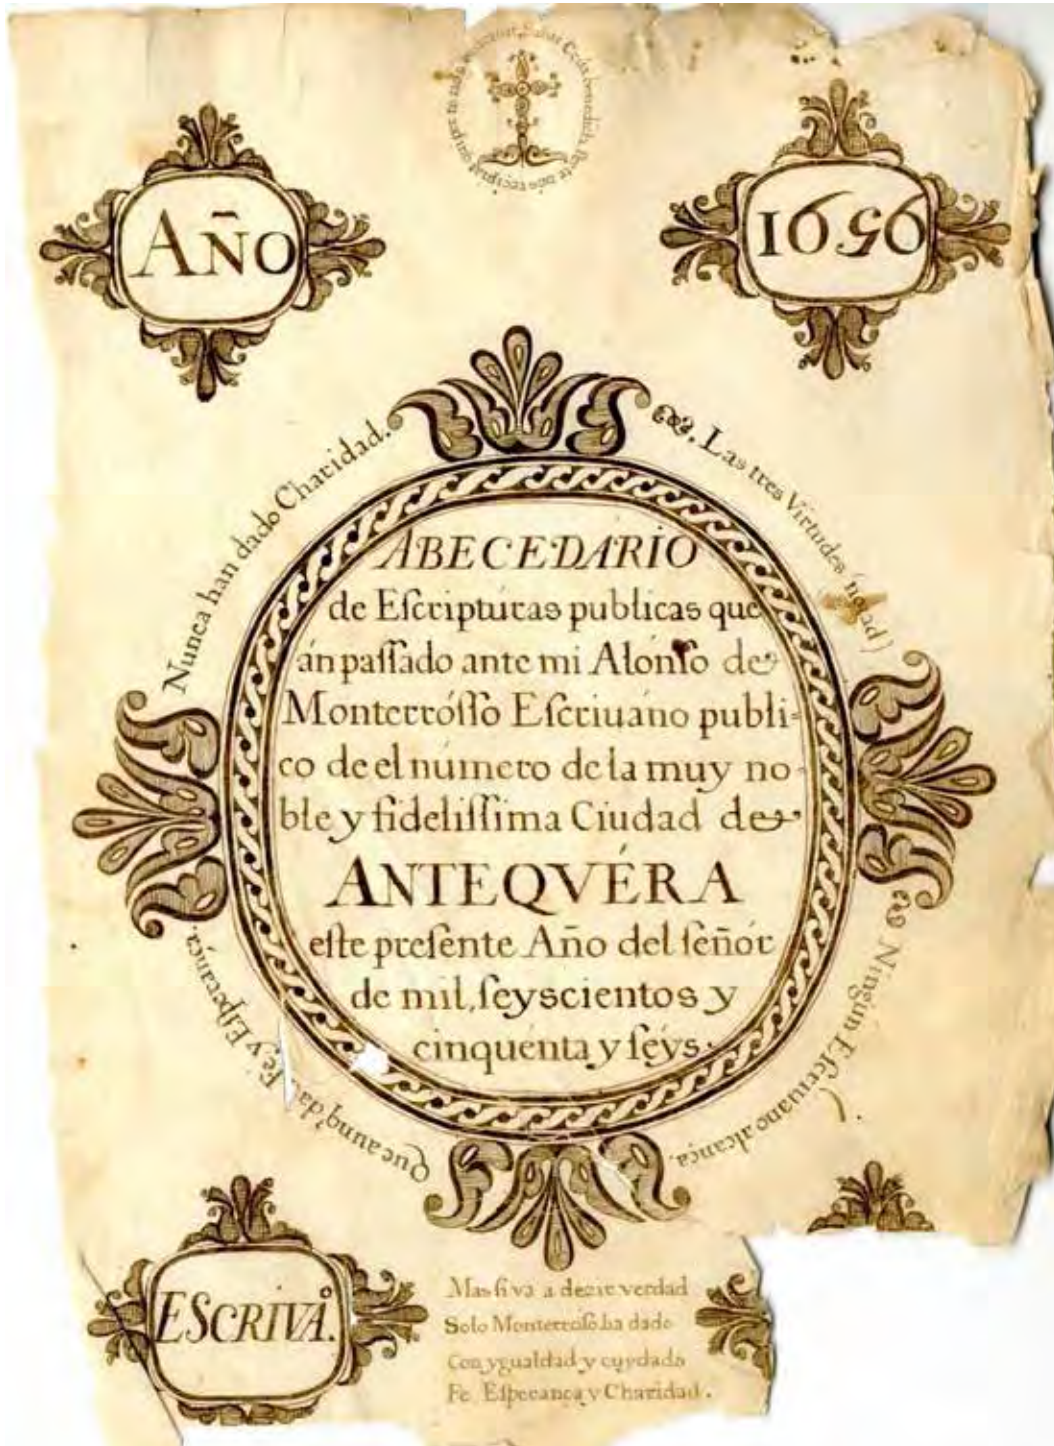 AÑO
1656
Las tres Virtudes (peno
Ningún Escriuano alcança.
Que aunq dan Fé y Esperança.
Nunca han dado Charidad.
ABECEDARIO
de Eſcriptúras publicas que
án paſſado ante mi Alónſo de
Monterróſſo Eſcriuáno publi=
co de el número de la muy no=
ble y fideliſſima Ciudad de
ANTEQVÉRA
eſte preſente Año del ſeñór
de mil, ſeyscientos y
cinquénta y ſéys.
ESCRIVAº.
Mas ſi va a dezir verdad
Solo Monterroſo ha dado
Con ygualdad y cuydado
Fe Eſperança y Charidad.